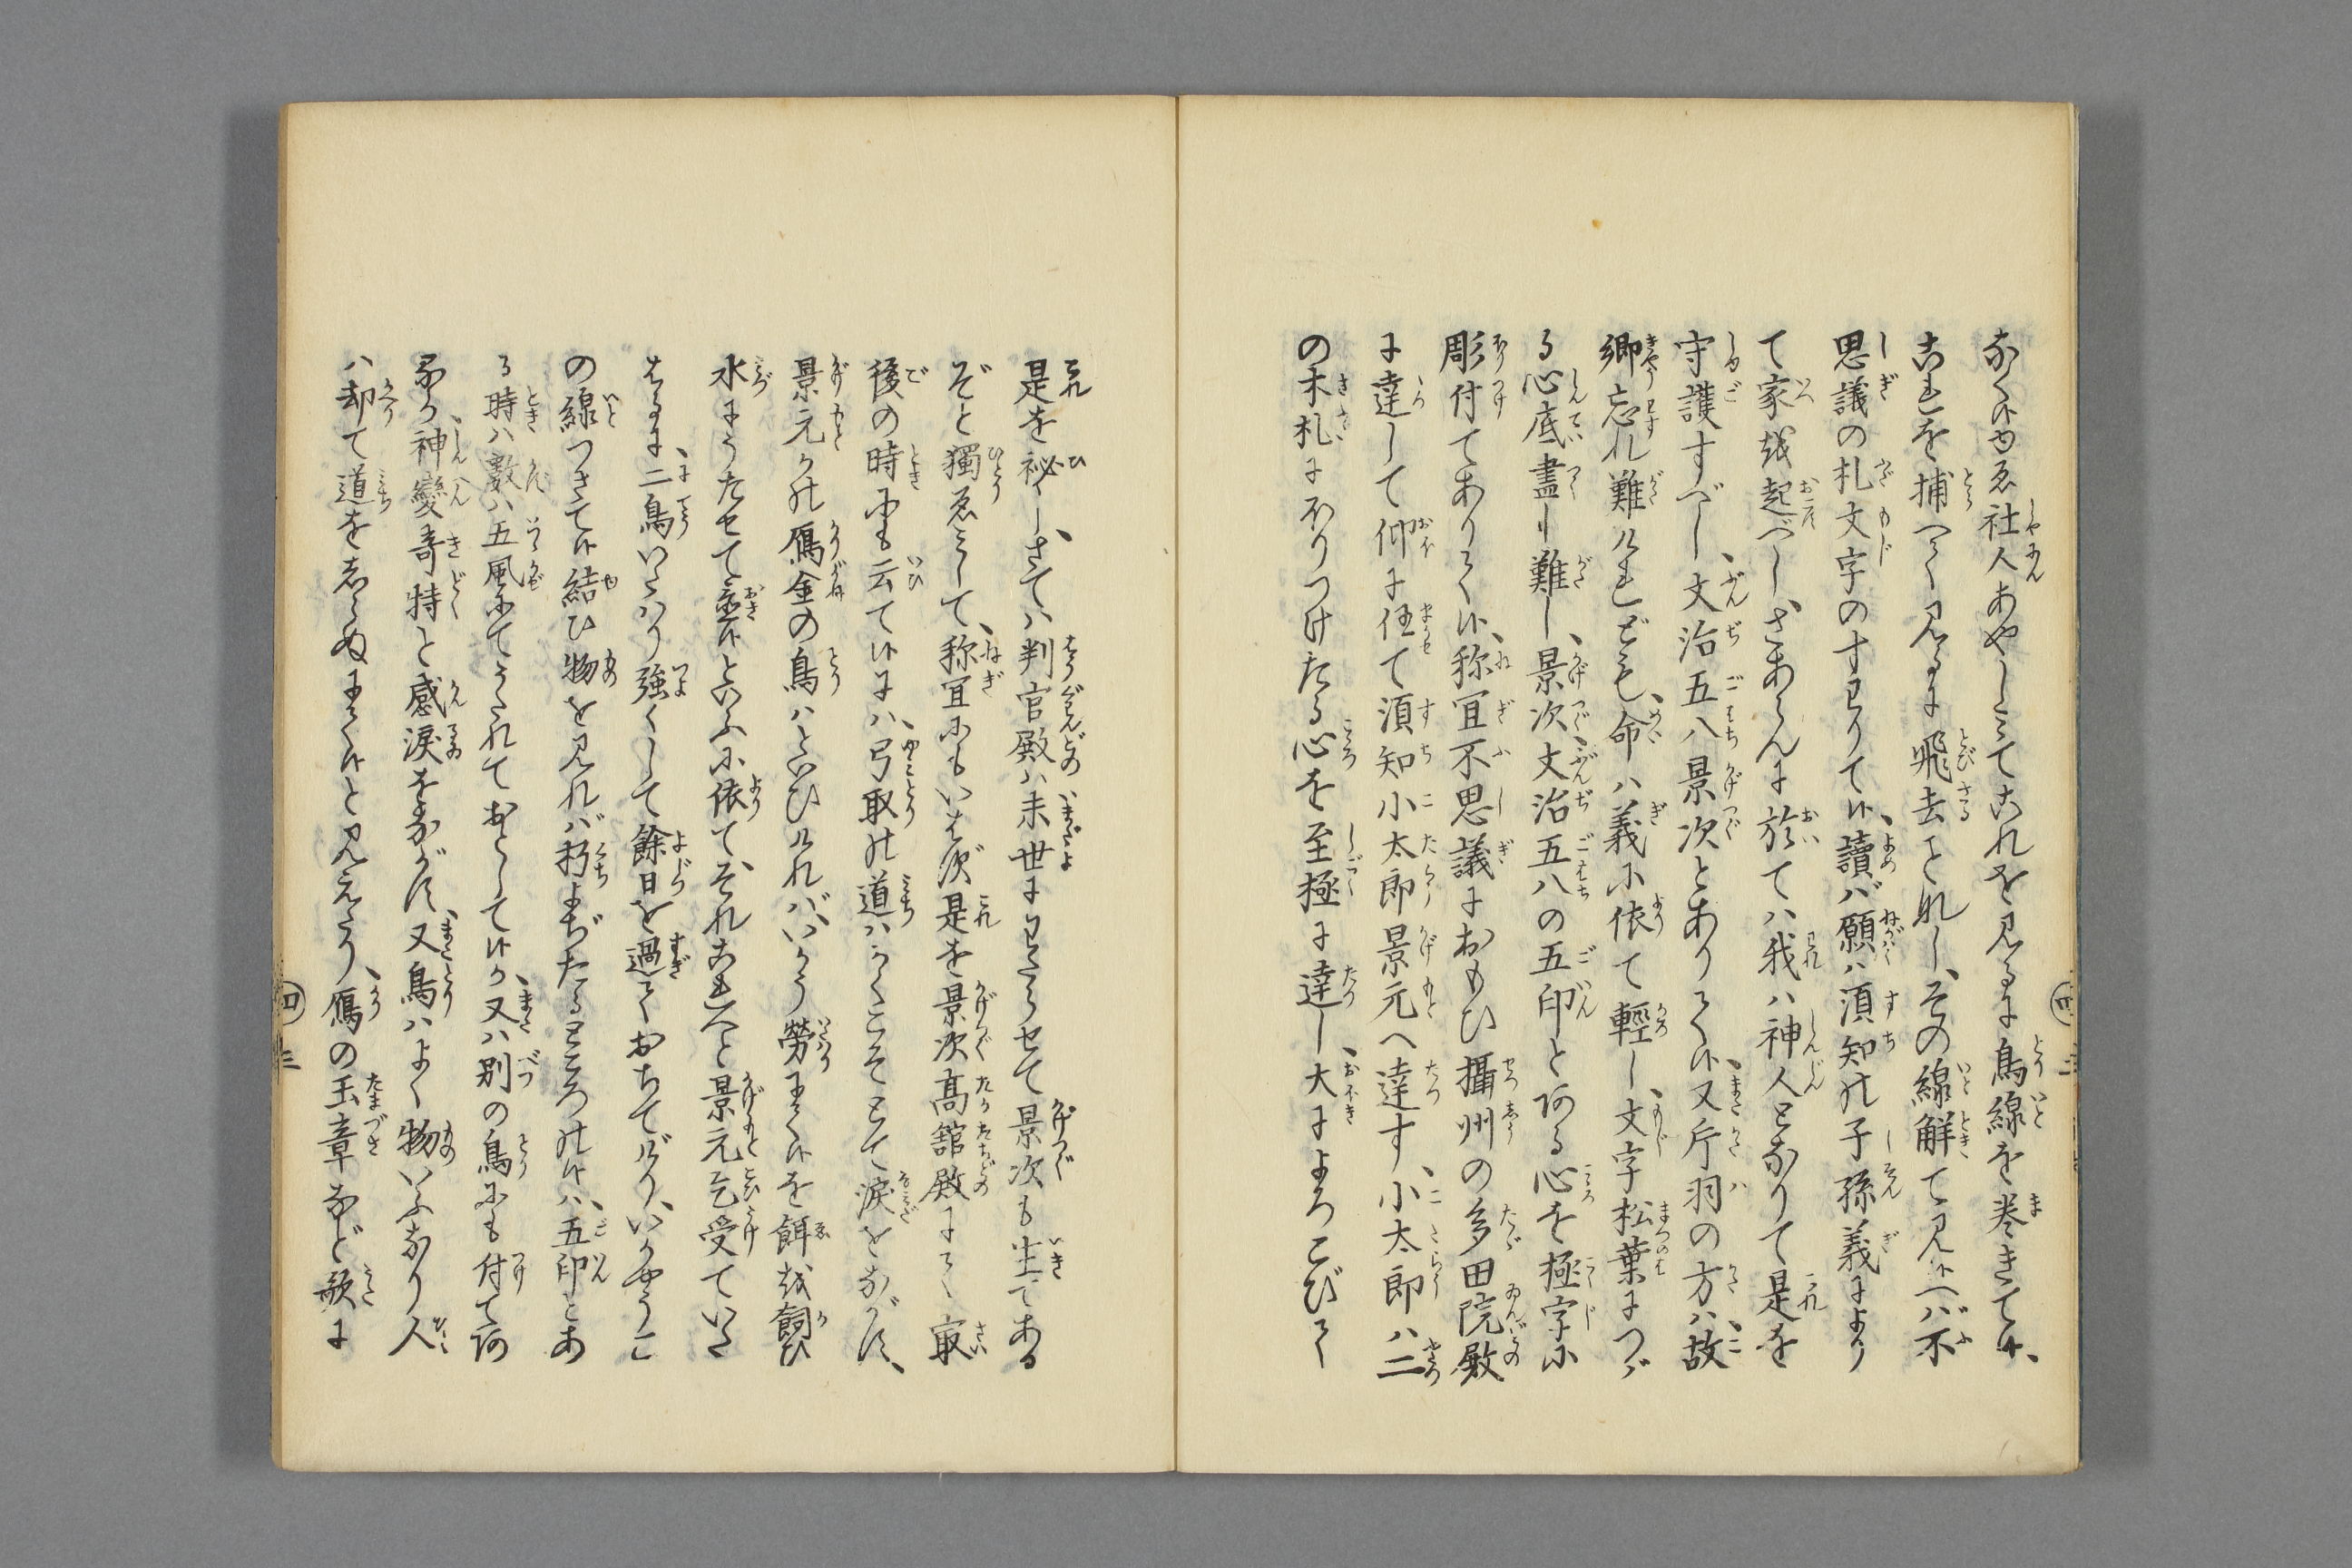 なく候ゆゑ社人あやしみてこれを見るに鳥線を巻きて候、
これを捕へて見るに飛去ことなし、その線解て見候へバ不
思議の札文字のすわりて候、讀バ願ハ須知の子孫義により
て家を起べし、さあらんに於てハ我ハ神人となりて是を
守護すべし、文治五八景次とありて候、又片羽の方ハ、故
卿忘れ難けれども、命ハ義に依て輕し、文字松葉につゞ
る心底盡し難し、景次文治五八の五印とある心を極字に
彫付てありて候、祢宜不思議におもひ攝州の多田院殿
に達して仰に任て須知小太郎景元へ達す、小太郎ハ二
の木札にほりつけたる心を至極に達し、大によろこびて
是を秘し、さてハ判官殿ハ未世にわたらせて景次も生てある
ぞと獨ゑみして、祢宜にもいはず是を景次高舘殿にて、㝡
後の時にも云て候には、弓取の道ハかくこそとて涙をながす、
景元かの鴈金の鳥ハといひければ、いかう勞れて候を餌を飼ひ
水にうたせて置候といふに依て、それこれへと景元乞受ていた
はるに、二鳥いたハり強くして餘日を過ておちてけり、いかやうに
の線つきて候結ひ物を見れバ朽よぢたるところの候ハ、五印とあ
る時ハ數ハ五風にてうたれておとして候か又ハ別の鳥にも付てあ
るか、神變奇特と感涙をながす、又鳥ハよく物いふなり人
ハ却て道をしらぬにて候と見えたり、鴈の玉章など歌に